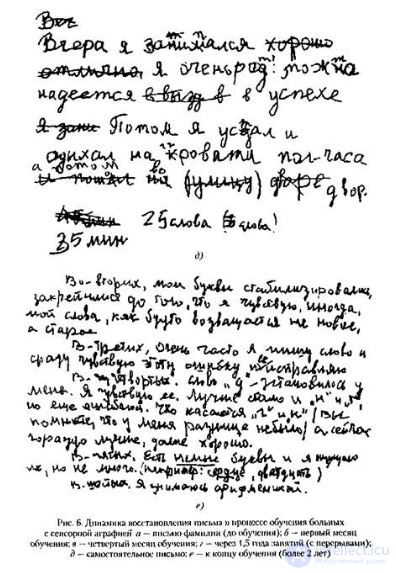 Вче
Вчера я занимался хорошо
отлично, я очень рад! можна
надеется в успехе
я зани Потом я устал и
отдихал на кровати пол-часа
а потом я пошал на (улицу) дворе двор.
25 слова слова!
35 мин
д)
Во-вторих, мои буквы стабилизировались,
закрепился до того, что я чувствую, иногда,
мой слова, как будто возвращается не новое,
а старое.
В-третих, очень часто я пишу слово и
сразу чувствую эту ошибку исправляю
В-четвёртых. слово "д" - установилось у
меня. Я чувствую ее. Лучше стало и "н" и "т"
но еще ошибаюсь. Что касается "г" и "к" / Вы
помните, что у меня разница небыло / а сейчас
гораздо лучше, даже хорошо.
В-пятих, Есть немие буквы и я пишу
их, но не много. (например: сердце, двадцать)
В-шойтых. Я знимаюсь арифметикай.
е)
Рис. 6. Динамика восстановления письма в процессе обучения больных
с сенсорной аграфией а — письмо фамилии (до обучения); б — первый месяц
обучения; в — четвертый месяц обучения; г — через 1,5 года занятий (с перерывами);
д — самостоятельное письмо; е — к концу обучения (более 2 лет)
intellect.icu